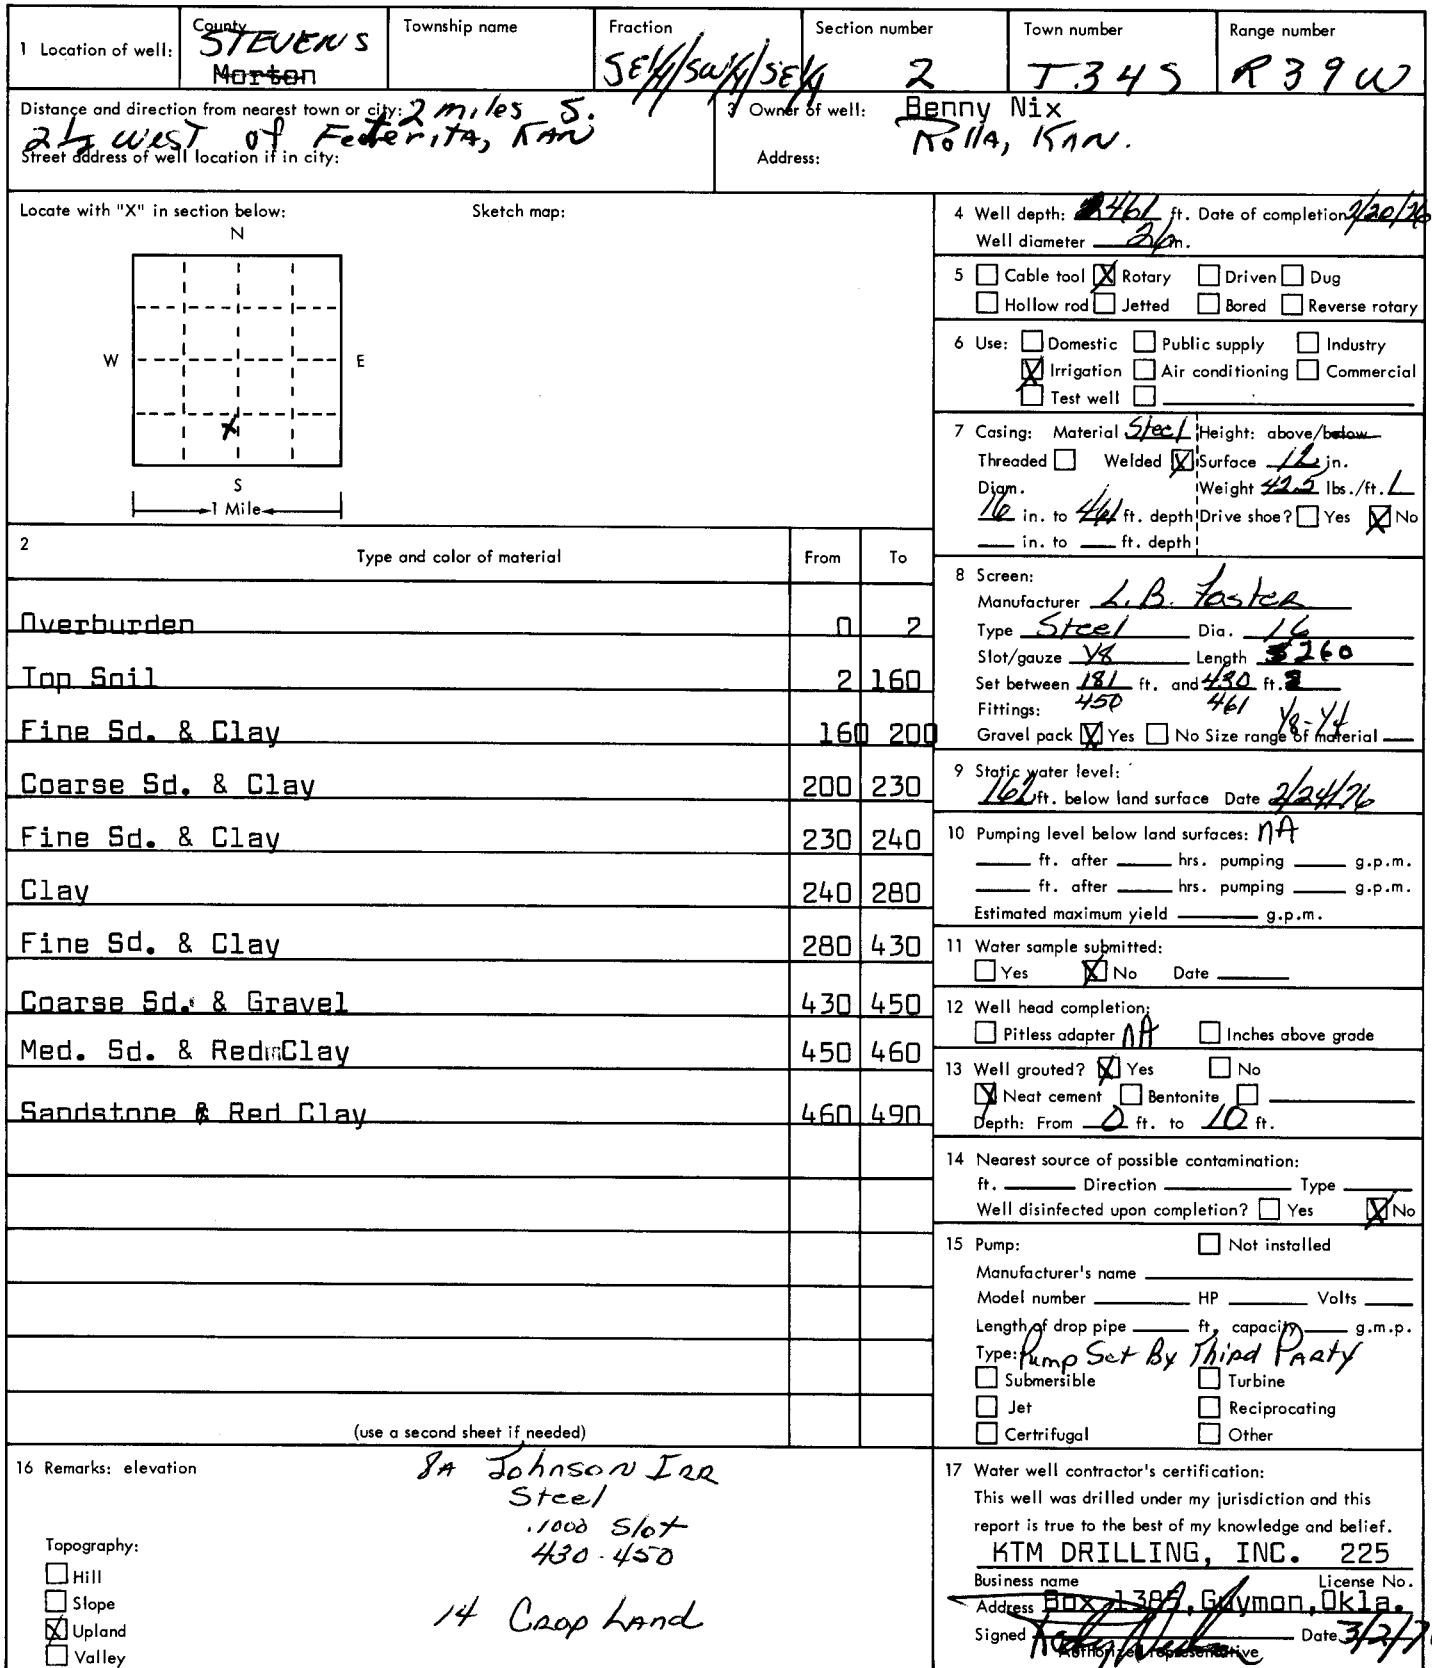 1 Location of well:
County
STEVENS
Morton
Township name
Fraction
SE1/4/SW1/4/SE1/4
Section number
2
Town number
T.34S
Range number
R39W
Distance and direction from nearest town or city: 2 miles S.
2 1/2 west of Feterita, KAN
Street address of well location if in city:
3 Owner of well: Benny Nix
Rolla, Kan.
Address:
Locate with "X" in section below:
Sketch map:
N
W
E
X
S
1 Mile
2
Type and color of material
From
To
Overburden 0 2
Top Soil 2 160
Fine Sd. & Clay 160 200
Coarse Sd. & Clay 200 230
Fine Sd. & Clay 230 240
Clay 240 280
Fine Sd. & Clay 280 430
Coarse Sd. & Gravel 430 450
Med. Sd. & Red Clay 450 460
Sandstone & Red Clay 460 490
(use a second sheet if needed)
4 Well depth: 461 ft. Date of completion 2/20/76
Well diameter 26 in.
5 Cable tool X Rotary Driven Dug
Hollow rod Jetted Bored Reverse rotary
6 Use: Domestic Public supply Industry
X Irrigation Air conditioning Commercial
Test well
7 Casing: Material Steel Height: above/below
Threaded Welded X Surface 12 in.
Diam. Weight 42.5 lbs./ft.
16 in. to 461 ft. depth Drive shoe? Yes X No
in. to ft. depth
8 Screen:
Manufacturer L.B. Foster
Type Steel Dia. 16
Slot/gauze 1/8 Length 260
Set between 181 ft. and 430 ft.
Fittings: 450 461
Gravel pack X Yes No Size range of material 1/8-1/4
9 Static water level:
162 ft. below land surface Date 2/24/76
10 Pumping level below land surfaces: NA
ft. after hrs. pumping g.p.m.
ft. after hrs. pumping g.p.m.
Estimated maximum yield g.p.m.
11 Water sample submitted:
Yes X No Date
12 Well head completion:
Pitless adapter NA Inches above grade
13 Well grouted? X Yes No
X Neat cement Bentonite
Depth: From 0 ft. to 10 ft.
14 Nearest source of possible contamination:
ft. Direction Type
Well disinfected upon completion? Yes X No
15 Pump: Not installed
Manufacturer's name
Model number HP Volts
Length of drop pipe ft. capacity g.m.p.
Type: Pump Set By Third Party
Submersible Turbine
Jet Reciprocating
Certrifugal Other
16 Remarks: elevation
8A Johnson IRR
Steel
.1000 Slot
430-450
14 Crop Land
Topography:
Hill
Slope
X Upland
Valley
17 Water well contractor's certification:
This well was drilled under my jurisdiction and this
report is true to the best of my knowledge and belief.
KTM DRILLING, INC. 225
Business name License No.
Address Box 1385, Guymon, Okla.
Signed Date 3/2/7
Authorized representative